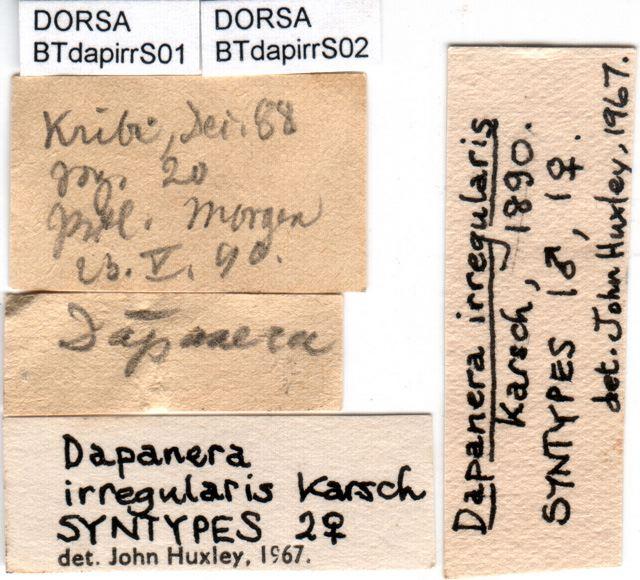 DORSA
BTdapirrS01
DORSA
BTdapirrS02
Kribi, Dei. 88
20
Morgen
23. V. 90.
Dapanera
Dapanera
irregularis Karsch
SYNTYPES 2♀
det. John Huxley, 1967.
Dapanera irregularis
Karsch, 1890.
SYNTYPES 1♂, 1♀.
det. John Huxley, 1967.